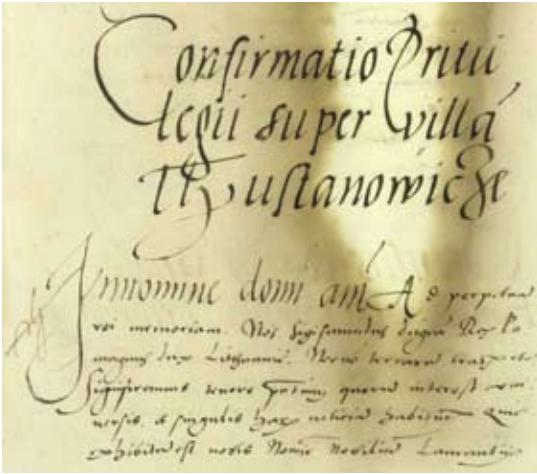 Confirmatio Privi
legii super villā
Hustanowicze
In nomine domi am Ad perpetuā
rei memoriam. Nos Sigismundus dei grā Rex Po
magnus dux Lithuaniæ. Necnō terrarū
Significamus tenore quorū interest
et singulis harū noticiā habituris Quia
exhibitū est nobis Nomine Nobiliū Laurentii